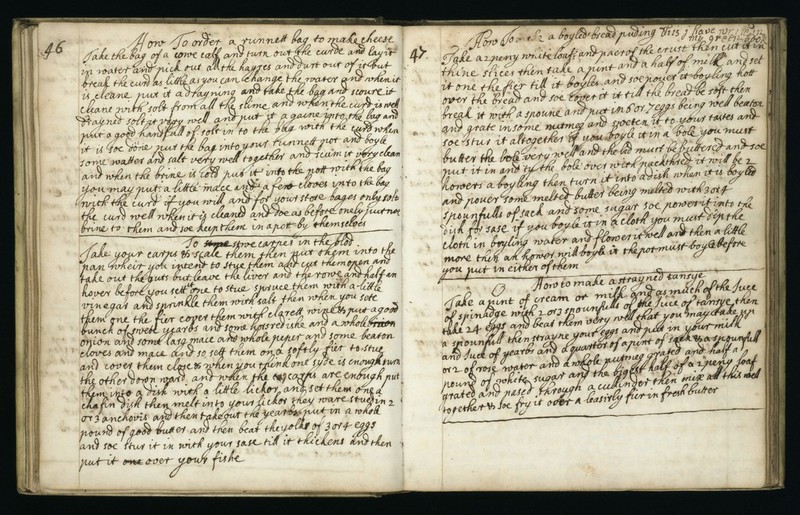 46
How To order a runnett bag to make cheese
Take the bag of a cowe calf and turn out the curde and lay it
in water and pick out all the hayres and durt out of it but
break the curd as little as you can change the water and when it
is cleane put it a drayning and take the bag and scoure it
cleane with solt from all the slime and when the curd is well
drayned solt it very well and put it a gaine into the bag and
put a good handfull of solt in to the bag with the curd when
it is soe done put the bag into your runnett pott and boyle
some watter and salt very well together and scum it very clean
and when the brine is cold put it into the pott with the bag
you may put a little mace and a few cloves into the bag
with the curd if you will and for your store bages only solt
the curd well when it is cleaned and doe as before only put noe
brine to them and soe keep them in a pot by themselves
To stwe carpes in the blod
Take your carps & scale them then put them into the
pan wheir you intend to stue them and cut them open and
take out the guts but leave the liver and the rowe and half an
hower before you sett one to stue spruce them with a little
vinegar and sprinkle them with salt then when you sete
them one the fier cover them with clarett wine & put a good
bunch of swete yearbs and some horsred ishe and a whole
onion and some larg mace and whole peper and some beaten
cloves and mace and so sett them on a softly fier to stue
and cover them close & when you think one syde is enough turn
the other down ward, and when the carps are enough put
them into a dish with a little lickor, and set them one a
chafin dish then melt into your lickor they ware stued in 2
or 3 anchovis and then take out the yearbs put in a whole
pound of good butter and then beat the yolks of 3 or 4 eggs
and soe stur it in with your sase till it thickens and then
put it over your fishe
47
How To a boyled bread puding This I have
my
Take a 2 peny white loafe and pare of the crust then cut it in
thine slices then take a pint and a half of milk and set
it one the fier till it boyles and soe power it boyling hott
over the bread and soe cover it it till the bread be soft then
break it with a spoune and put in 6 or 7 eggs being well beaten
and grate in some nutmeg and sweeten it to your taites and
soe stur it altogether if you boyle it in a bole you must
butter the bole very well and the lid must be buttered and soe
put it in and ty the bole over with packthred it will be 2
howers a boyling then turn it into a dish when it is boyled
and power some melted butter being melted with 3 or 4
spounfulls of sack and some sugar soe power it into the
dish for sase if you boyle it in a cloth you must dip the
cloth in boyling water and flower it well and then a little
more then an hower will boyle it the pot must boyle before
you put in either of them
How to make a strayned tansye
Take a pint of cream or milk and as much of the Juce
of spinhage with 2 or 3 spounfulls of the Juce of tansye then
take 24 eggs and beat them very well that you may take up
a spounfull then strayne your eggs and put in your milk
and Juce of yearbs and a quarter of a pint of sack & a spounfull
or 2 of rose water and a whole nutmeg grated and half a
pound of white sugar and the biggest half of a 2 peny loaf
grated and pased through a cullinder then mix all this well
together & soe fry is over a leasirly fier in fresh butter